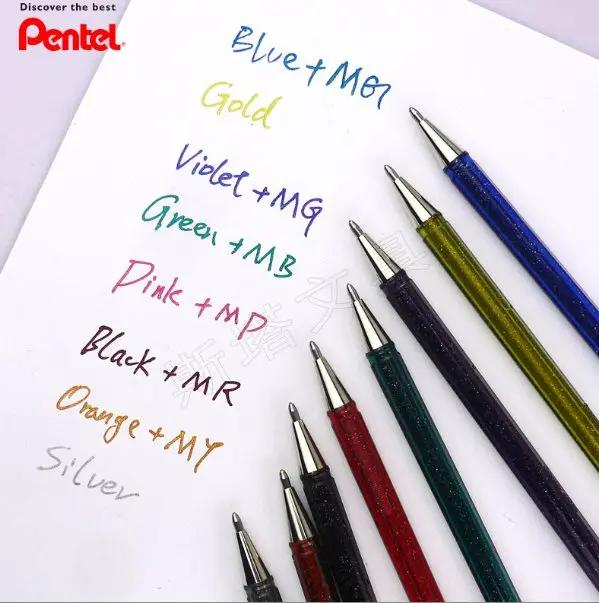 Discover the best
Pentel
Blue + MG
Gold
Violet + MG
Green + MB
Pink + MP
Black + MR
Orange + MY
Silver
斯塔文具